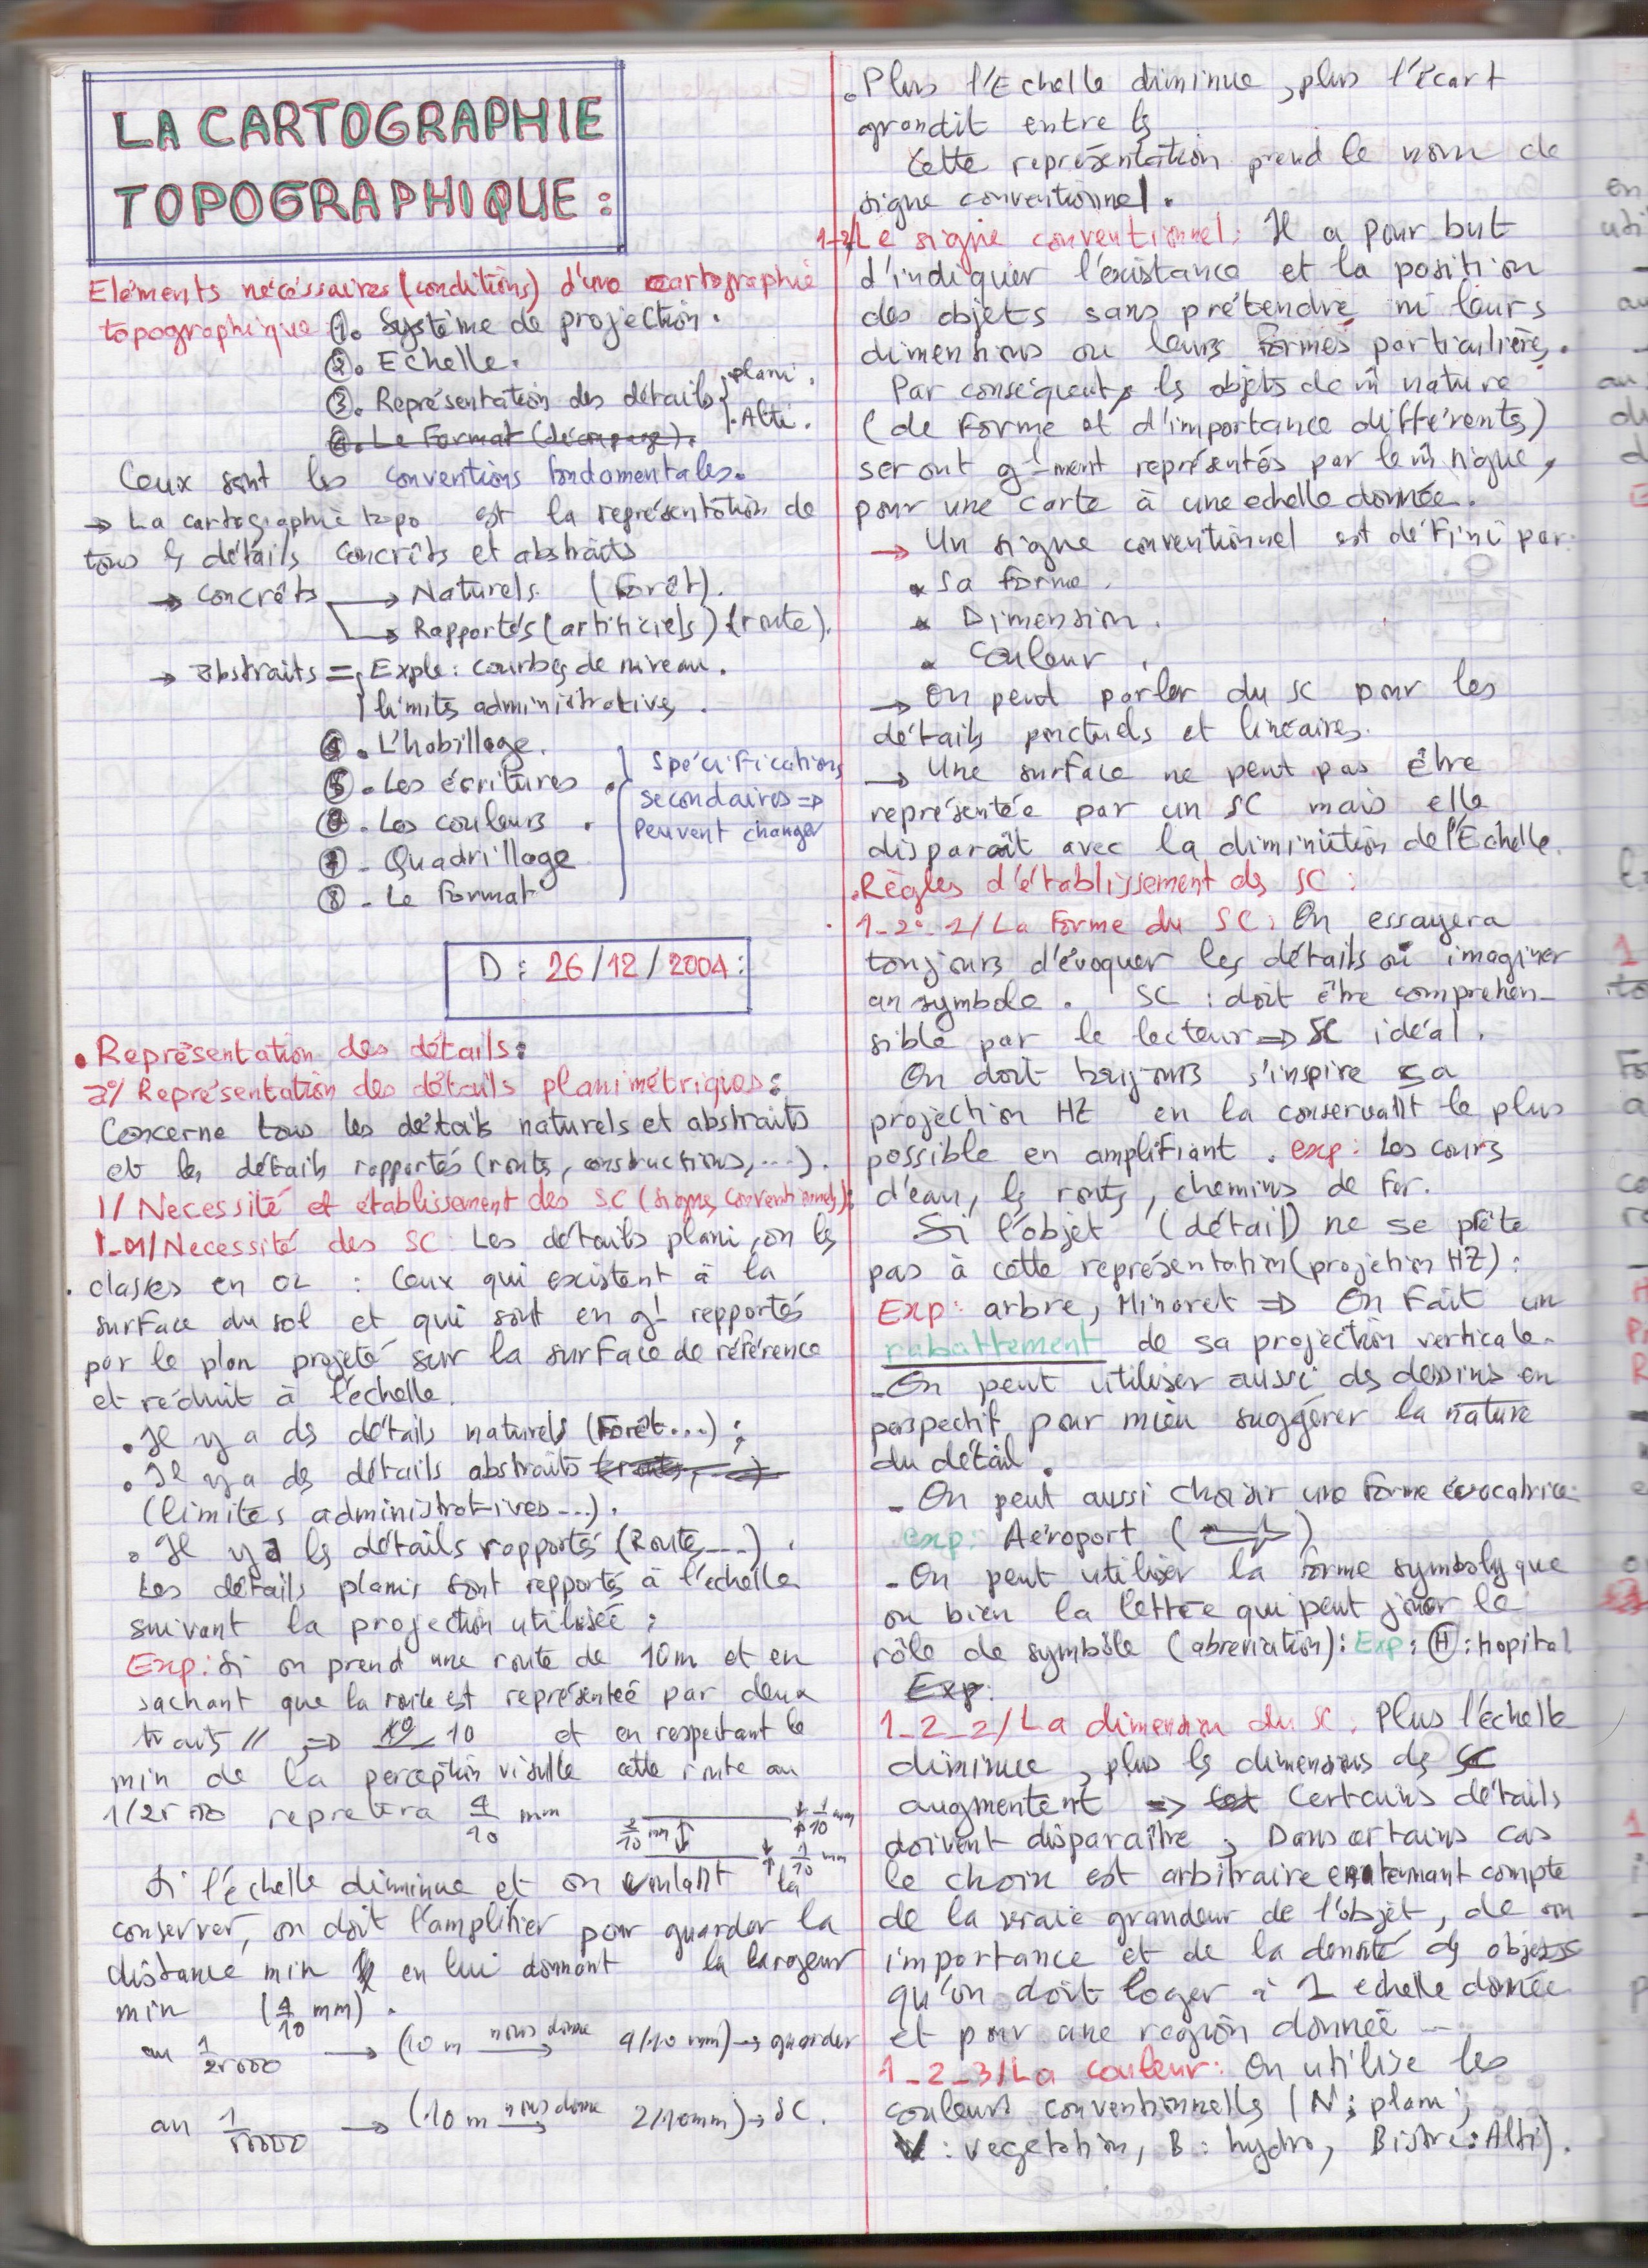 LA CARTOGRAPHIE
TOPOGRAPHIQUE :
Eléments nécéssaires (conditions) d'une cartographie
topographique : ①. Système de projection.
②. Echelle.
③. Représentation des détails { plani.
. Alti.
④. Le Format (découpage).
Ceux sont les conventions fondamentales.
→ La cartographie topo est la représentation de
tous ls détails concrêts et abstraits
→ concrêts → Naturels (Forêt).
→ Rapportés (artificiels) (route).
→ abstraits = Exple : courbes de niveau.
limits administratives.
④. L'habillage.
⑤. Les écritures.
⑥. Les couleurs.
⑦ - Quadrillage
⑧ - Le Format
Spécifications
secondaires ⇒
Peuvent changer
D : 26/12/2004 :
• Représentation des détails :
a°/ Représentation des détails planimétriques :
Concerne tous les détails naturels et abstraits
et les détails rapportés (routs, constructions, ....).
1/ Necessité et établissement des SC (signes conventionnels) :
1-01/ Necessité des SC Les détails plani, on ls
classes en 02 : Ceux qui existent à la
surface du sol et qui sont en gl repportés
par le plan projeté sur la surface de référence
et réduit à l'échelle.
• Il y a ds détails naturels (Forêt...) ;
• Il y a ds détails abstraits (routs, ...)
(limites administratives...).
• Il y a ls détails rapportés (Route, ....).
Les détails planis sont repportés à l'echelle
suivant la projection utilisée ;
Exp : Si on prend une route de 10m et en
sachant que la route est représentée par deux
traits // ⇒ 10 10 et en respectant le
min de la perception visulle cette route au
1/25000 4/10 mm
2/10 mm 1/10 mm
1/10 mm
Si l'échelle diminue et on voulant la
conserver, on doit l'amplifier pour guarder la
distance min en lui donnant la largeur
min (4/10 mm).
au 1/25000 → (10 m nous donne → 4/10 mm) → guarder
au 1/50000 → (10 m nous donne → 2/10mm) → SC.
. Plus l'Echelle diminue, plus l'écart
grandit entre ls
Cette représentation prend le nom de
signe conventionnel.
1-2/ Le signe conventionnel : Il a pour but
d'indiquer l'existance et la position
des objets sans prétendre ni leurs
dimentions ou leurs formes particulières.
Par conséquent, ls objets de m̂ nature
(de Forme et d'importance différents)
seront gl-ment représentés par le m̂ signe,
pour une carte à une echelle donnée.
→ Un signe conventionnel est défini par :
* Sa forme.
* Dimension.
* Couleur.
→ On peut parler du SC pour les
détails ponctuels et linéaires.
→ Une surface ne peut pas être
représentée par un SC mais elle
disparaît avec la diminution de l'Echelle.
. Règles d'établissement ds SC :
1-2-1/ La Forme du SC : On essayera
toujours d'évoquer les détails où imaginer
un symbole. SC : doit être compréhen-
sible par le lecteur ⇒ SC idéal.
On doit toujours s'inspire sa
projection HZ en la conservant le plus
possible en amplifiant. exp : Les cours
d'eau, ls routs, chemins de fer.
Si l'objet (détail) ne se prête
pas à cette représentation (projetion HZ) :
Exp : arbre, Minaret ⇒ On Fait un
rabattement de sa projection verticale.
- On peut utiliser aussi ds dessins en
perspectif pour mieu suggérer la nature
du détail.
- On peut aussi choisir une forme évocatrice
exp : Aéroport ( )
- On peut utiliser la forme symbolyque
ou bien la lettre qui peut jouer le
rôle de symbôle (abreviation) : Exp : Ⓗ : hopital
Exp :
1-2-2/ La dimension du SC. Plus l'échelle
diminue, plus ls dimensions ds SC
augmentent ⇒ Certains détails
doivent disparaître ; Dans certains cas
le choix est arbitraire en tennant compte
de la vraie grandeur de l'objet, de son
importance et de la densité ds objets
qu'on doit loger à 1 echelle donnée
et pour une région donnée -
1-2-3/ La couleur : On utilise les
couleurs conventionnells (N : plani ;
V : vegetation, B : hydro, Bistre : Alti).